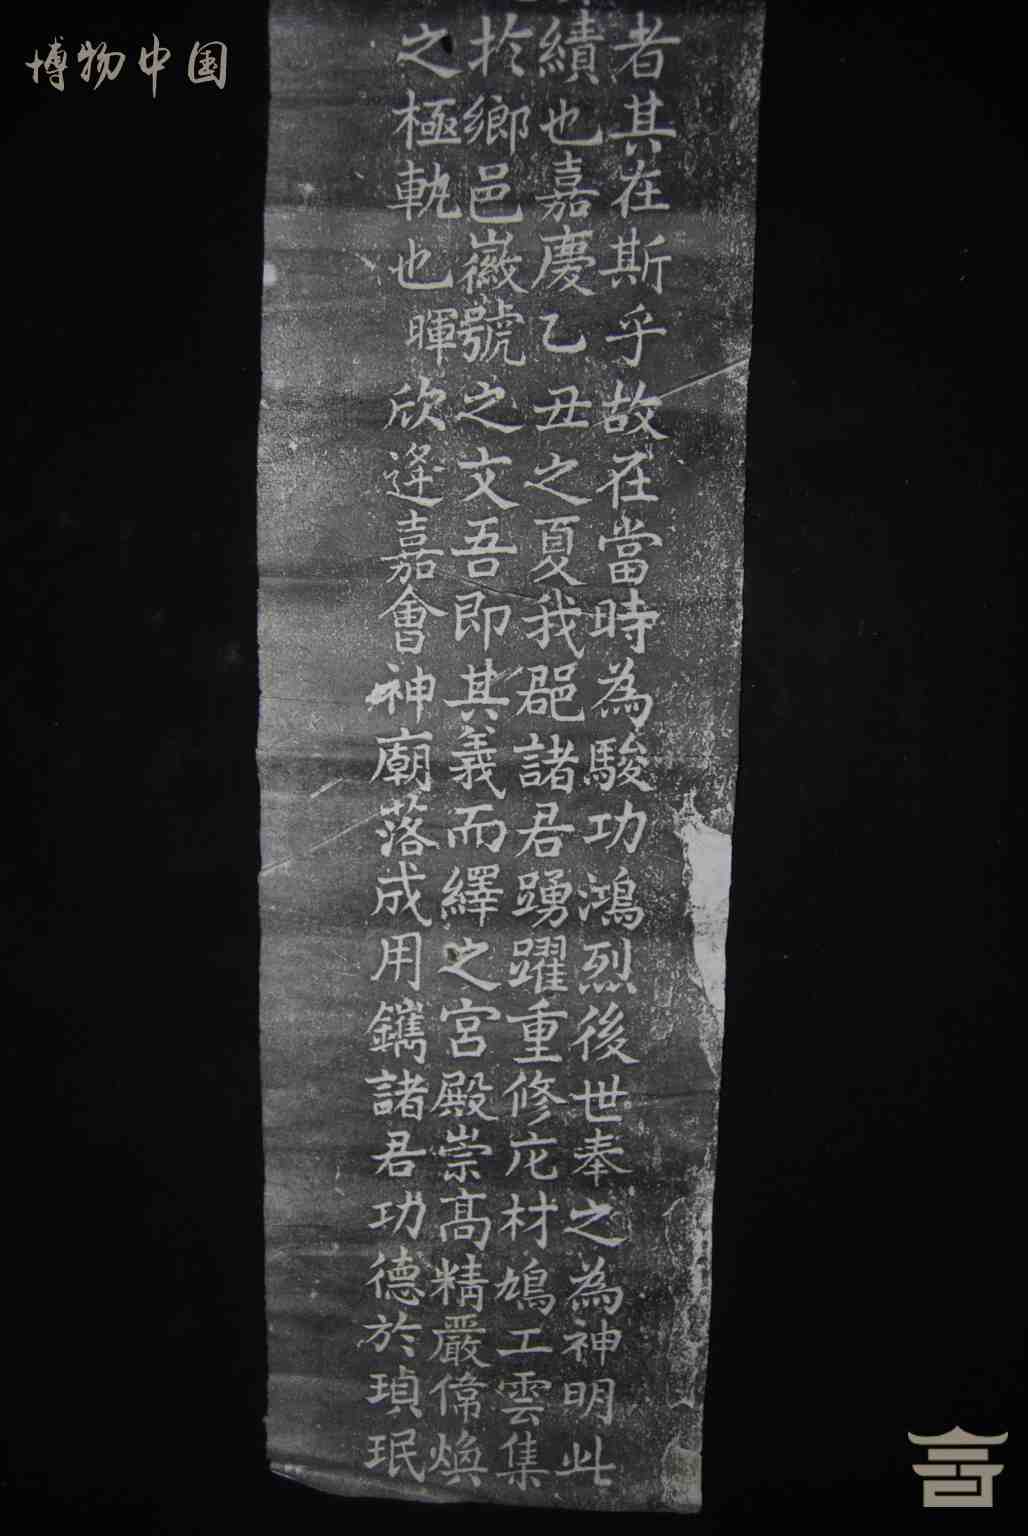 博物中国
者其在斯乎故在當時為駿功鴻烈後世奉之為神明此
績也嘉慶乙丑之夏我邑諸君踴躍重修庀材鳩工雲集
於鄉邑徽號之文吾即其義而繹之宮殿崇高精嚴偹煥
之極軌也暉欣逢嘉會神廟落成用鐫諸君功德於瑱珉